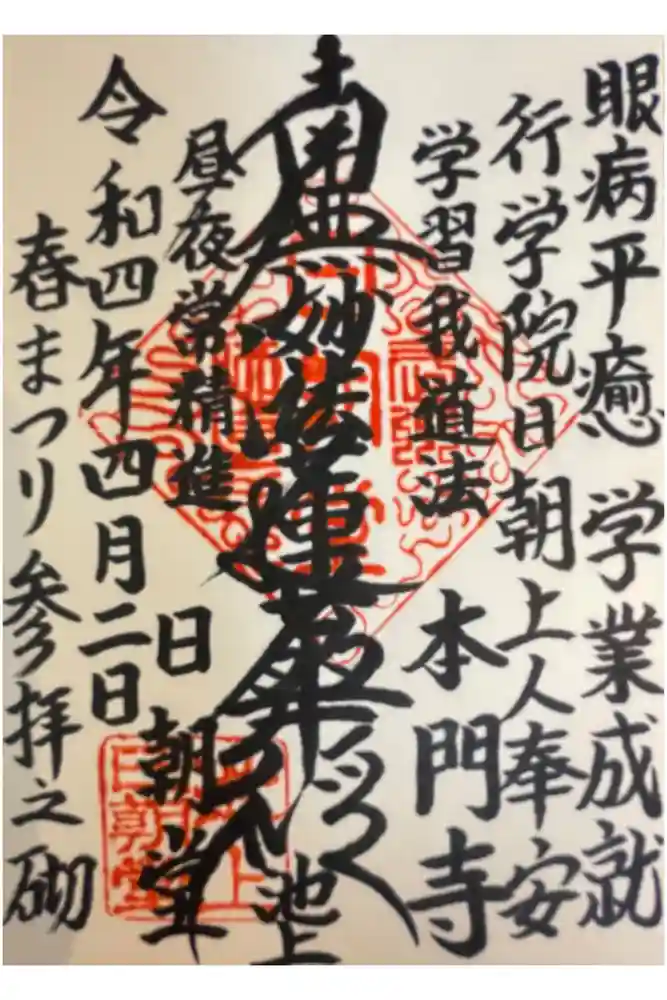 眼病平癒 学業成就
行学院日朝上人奉安
学習我道法
本門寺
南無妙法蓮華経
池上
昼夜常精進
日朝堂
令和四年四月二日
春まつり参拝之砌
池上
日朝堂